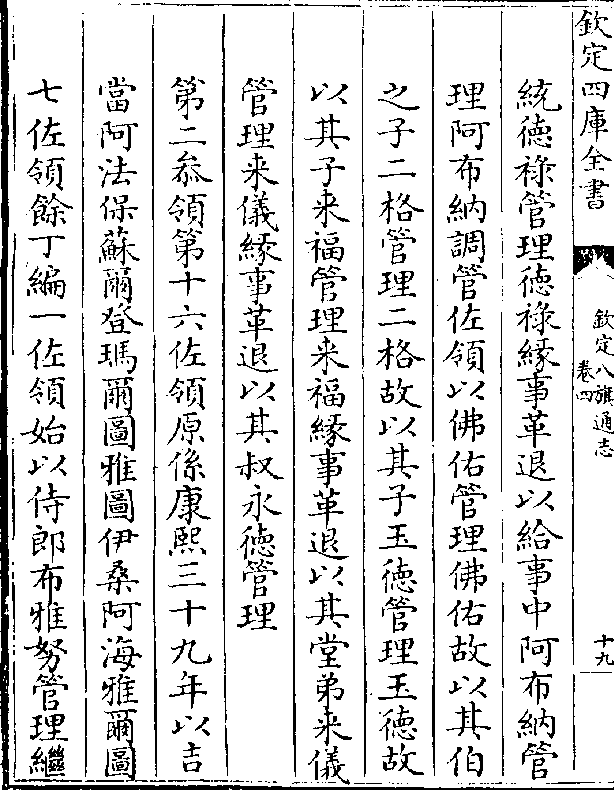 欽定四庫全書
欽定八旗通志
卷四
十九
統德祿管理德祿緣事革退以給事中阿布納管
理阿布納調管佐領以佛佑管理佛佑故以其伯
之子二格管理二格故以其子玉德管理玉德故
以其子来福管理来福緣事革退以其堂弟来儀
管理来儀緣事革退以其叔永德管理
第二叅領第十六佐領原係康熙三十九年以吉
當阿法保蘇爾登瑪爾圖雅圖伊桑阿海雅爾圖
七佐領餘丁編一佐領始以侍郎布雅努管理繼